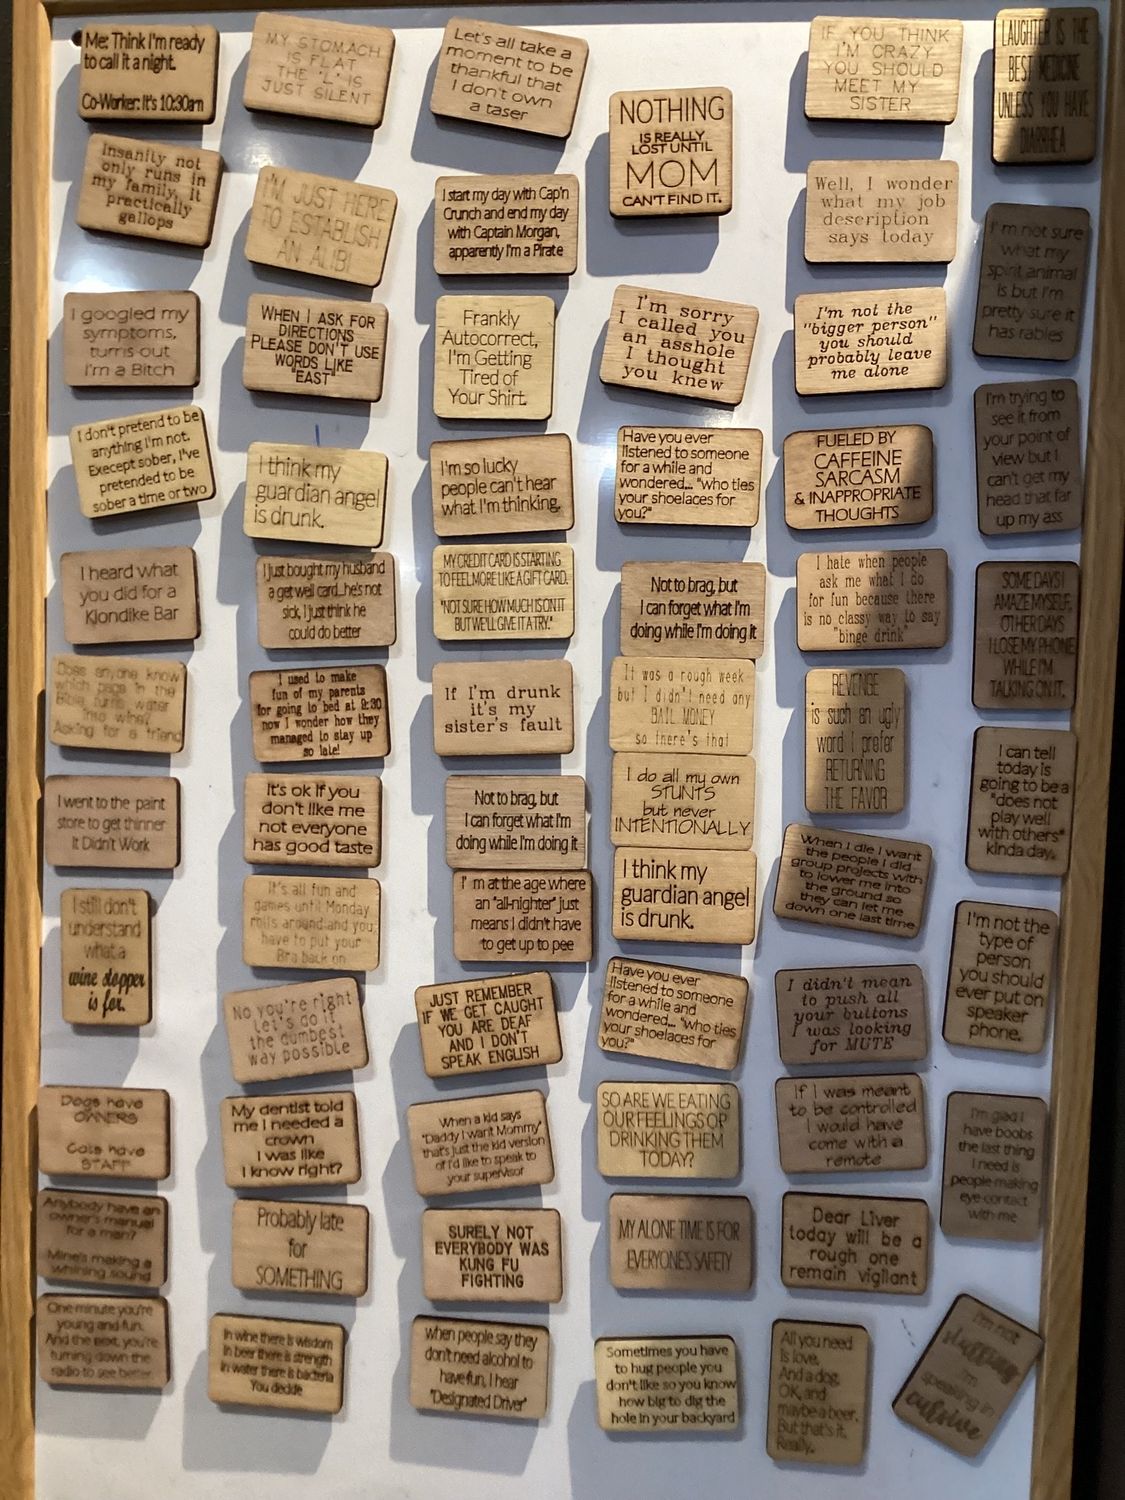 Me: Think I'm ready
to call it a night.
Co-Worker: It's 10:30am
Insanity not
only runs in
my family, it
practically
gallops
I googled my
symptoms,
turns out
I'm a Bitch
I don't pretend to be
anything I'm not.
Execept sober, I've
pretended to be
sober a time or two
I heard what
you did for a
Klondike Bar
Does anyone know
which page in the
Bible turns water
into wine?
Asking for a friend
I went to the paint
store to get thinner
It Didn't Work
I still don't
understand
what a
wine stopper
is for.
Dogs have
OWNERS
Cats have
STAFF
Anybody have an
owner's manual
for a man?
Mine's making a
whining sound
One minute you're
young and fun.
And the next, you're
turning down the
radio to see better
MY STOMACH
IS FLAT
THE 'L' IS
JUST SILENT
I'M JUST HERE
TO ESTABLISH
AN ALIBI
WHEN I ASK FOR
DIRECTIONS
PLEASE DON'T USE
WORDS LIKE
"EAST"
I think my
guardian angel
is drunk.
I just bought my husband
a get well card...he's not
sick, I just think he
could do better
I used to make
fun of my parents
for going to bed at 9:30
now I wonder how they
managed to stay up
so late!
It's ok if you
don't like me
not everyone
has good taste
It's all fun and
games until Monday
rolls around and you
have to put your
Bra back on
No you're right
Let's do it
the dumbest
way possible
My dentist told
me I needed a
crown
I was like
I know right?
Probably late
for
SOMETHING
In wine there is wisdom
In beer there is strength
In water there is bacteria
You decide
Let's all take a
moment to be
thankful that
I don't own
a taser
I start my day with Cap'n
Crunch and end my day
with Captain Morgan,
apparently I'm a Pirate
Frankly
Autocorrect,
I'm Getting
Tired of
Your Shirt.
I'm so lucky
people can't hear
what I'm thinking.
MY CREDIT CARD IS STARTING
TO FEEL MORE LIKE A GIFT CARD.
"NOT SURE HOW MUCH IS ON IT
BUT WE'LL GIVE IT A TRY."
If I'm drunk
it's my
sister's fault
Not to brag, but
I can forget what I'm
doing while I'm doing it
I' m at the age where
an "all-nighter" just
means I didn't have
to get up to pee
JUST REMEMBER
IF WE GET CAUGHT
YOU ARE DEAF
AND I DON'T
SPEAK ENGLISH
When a kid says
"Daddy I want Mommy"
that's just the kid version
of I'd like to speak to
your supervisor
SURELY NOT
EVERYBODY WAS
KUNG FU
FIGHTING
when people say they
don't need alcohol to
have fun, I hear
"Designated Driver"
NOTHING
IS REALLY
LOST UNTIL
MOM
CAN'T FIND IT.
I'm sorry
I called you
an asshole
I thought
you knew
Have you ever
listened to someone
for a while and
wondered... "who ties
your shoelaces for
you?"
Not to brag, but
I can forget what I'm
doing while I'm doing it
It was a rough week
but I didn't need any
BAIL MONEY
so there's that
I do all my own
STUNTS
but never
INTENTIONALLY
I think my
guardian angel
is drunk.
Have you ever
listened to someone
for a while and
wondered... "who ties
your shoelaces for
you?"
SO ARE WE EATING
OUR FEELINGS OR
DRINKING THEM
TODAY?
MY ALONE TIME IS FOR
EVERYONE'S SAFETY
Sometimes you have
to hug people you
don't like so you know
how big to dig the
hole in your backyard
IF YOU THINK
I'M CRAZY
YOU SHOULD
MEET MY
SISTER
Well, I wonder
what my job
description
says today
I'm not the
"bigger person"
you should
probably leave
me alone
FUELED BY
CAFFEINE
SARCASM
& INAPPROPRIATE
THOUGHTS
I hate when people
ask me what I do
for fun because there
is no classy way to say
"binge drink"
REVENGE
is such an ugly
word I prefer
RETURNING
THE FAVOR
When I die I want
the people I did
group projects with
to lower me into
the ground so
they can let me
down one last time
I didn't mean
to push all
your buttons
I was looking
for MUTE
If I was meant
to be controlled
I would have
come with a
remote
Dear Liver
today will be a
rough one
remain vigilant
All you need
is love.
And a dog.
OK, and
maybe a beer.
But that's it.
Really.
LAUGHTER IS THE
BEST MEDICINE
UNLESS YOU HAVE
DIARRHEA
I'm not sure
what my
spirit animal
is but I'm
pretty sure it
has rabies
I'm trying to
see it from
your point of
view but I
can't get my
head that far
up my ass
SOME DAYS I
AMAZE MYSELF,
OTHER DAYS
I LOSE MY PHONE
WHILE I'M
TALKING ON IT.
I can tell
today is
going to be a
"does not
play well
with others"
kinda day.
I'm not the
type of
person
you should
ever put on
speaker
phone.
I'm glad I
have boobs
the last thing
I need is
people making
eye contact
with me
I'm not
slurring
I'm
speaking in
cursive